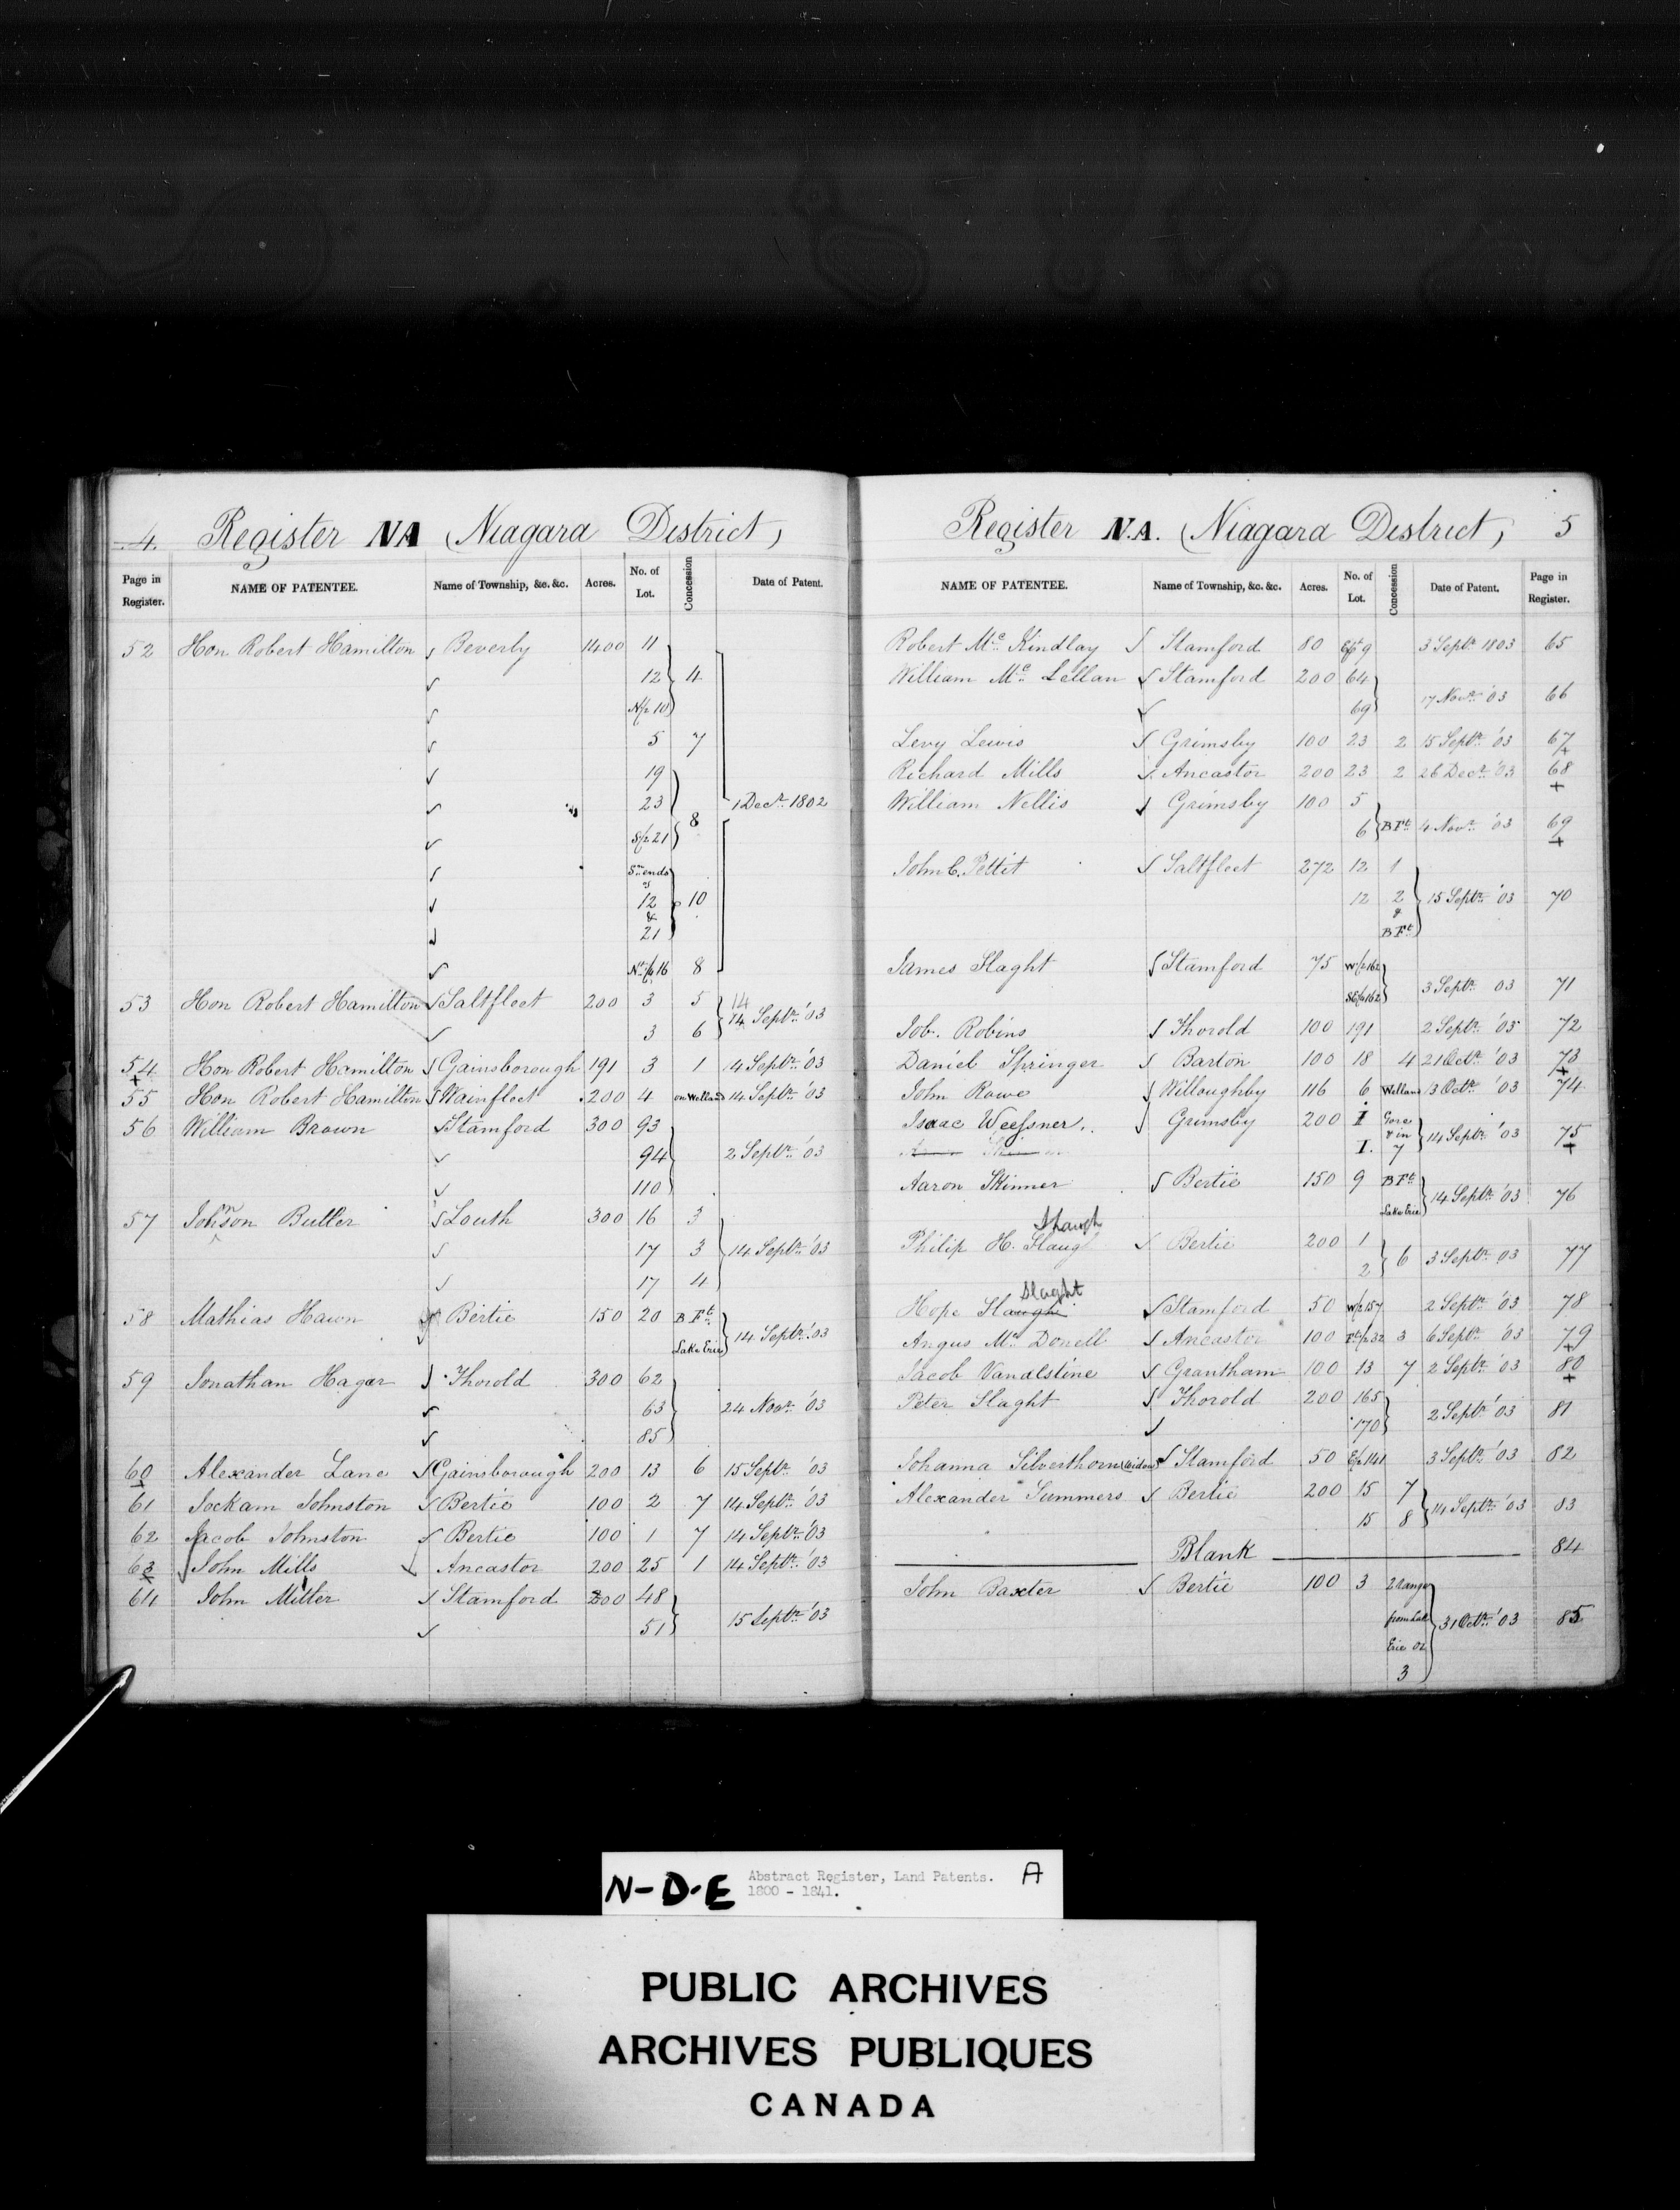 4. Register NA (Niagara District)
Page in Register. NAME OF PATENTEE. Name of Township, &c. &c. Acres. No. of Lot. Concession Date of Patent.
52 Hon Robert Hamilton Beverly 1400 11
12 4
N/2 10
5 7
19
23 1 Decr. 1802
8
S/2 21
Sn ends
of
12 10
&
21
8
53 Hon Robert Hamilton Saltfleet 200 3 5 14
3 6 14 Septr. '03
54 Hon Robert Hamilton Gainsborough 191 3 1 14 Septr. '03
55 Hon Robert Hamilton Wainfleet 200 4 on Welland 14 Septr. '03
56 William Brown Stamford 300 93
94 2 Septr. '03
110
57 Johnson Butler Louth 300 16 3
17 3 14 Septr. '03
17 4
58 Mathias Hawn Bertie 150 20 B Ft.
Lake Erie 14 Septr. '03
59 Jonathan Hagar Thorold 300 62
63 24 Novr. '03
85
60 Alexander Lane Gainsborough 200 13 6 15 Septr. '03
61 Jockam Johnston Bertie 100 2 7 14 Septr. '03
62 Jacob Johnston Bertie 100 1 7 14 Septr. '03
63 John Mills Ancastor 200 25 1 14 Septr. '03
64 John Miller Stamford 200 48
51 15 Septr. '03
Register N.A. (Niagara District) 5
NAME OF PATENTEE. Name of Township, &c. &c. Acres. No. of Lot. Concession Date of Patent. Page in Register.
Robert Mc. Kindlay Stamford 80 9 3 Septr. 1803 65
William Mc. Lellan Stamford 200 64
69 17 Novr. '03 66
Levy Lewis Grimsby 100 23 2 15 Septr. '03 67
Richard Mills Ancastor 200 23 2 26 Decr. '03 68
William Nellis Grimsby 100 5
6 B Ft. 4 Novr. '03 69
John C. Pettit Saltfleet 272 12 1
12 2 15 Septr. '03 70
&
B Ft.
James Slaght Stamford 75 W/2 162
3 Septr. 03 71
Job. Robins Thorold 100 191 2 Septr. '03 72
Daniel Springer Barton 100 18 4 21 Octr. '03 73
John Rowe Willoughby 116 6 Welland 13 Octr. '03 74
Isaac Weessner. Grimsby 200 I Gore
& in 14 Septr. '03 75
I. 7
Aaron Skinner Bertie 150 9 B Ft.
Lake Erie 14 Septr. '03 76
Philip H. Slaugh Bertie 200 1
2 6 3 Septr. 03 77
Slaght
Hope Slaugh Stamford 50 W/2 157 2 Septr. '03 78
Angus Mc. Donell Ancastor 100 32 3 6 Septr. '03 79
Jacob Vandlstine Grantham 100 13 7 2 Septr. '03 80
Peter Slaght Thorold 200 165
170 2 Septr. '03 81
Johanna Silverthorn (Widow) Stamford 50 E/2 141 3 Septr. '03 82
Alexander Summers Bertie 200 15 7
15 8 14 Septr. '03 83
Blank 84
John Baxter Bertie 100 3 2 range
from Lake 31 Octr. '03 85
Erie or
3
N-D-E Abstract Register, Land Patents. A
1800 - 1841.
PUBLIC ARCHIVES
ARCHIVES PUBLIQUES
CANADA